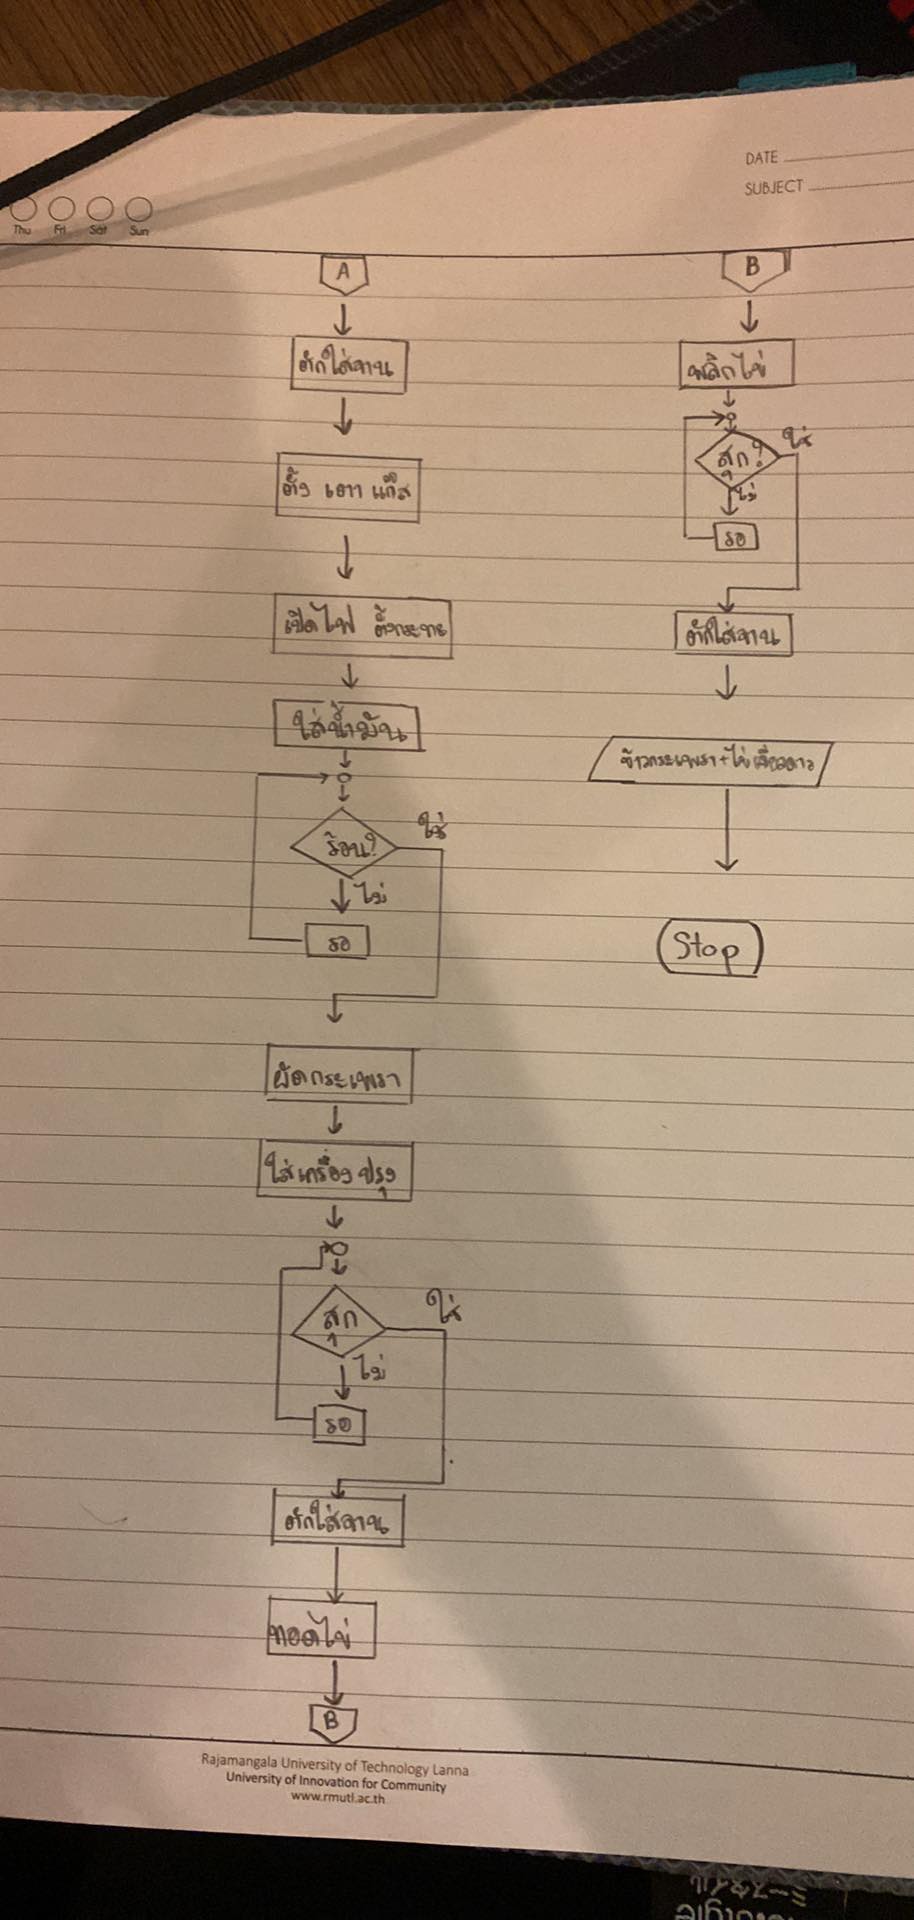 DATE
SUBJECT
Thu Fri Sat Sun
A
ตักใส่จาน
ตั้ง เตา แก๊ส
เปิดไฟ ตั้งกระทะ
ใส่น้ำมัน
ร้อน?
ใช่
ไม่
รอ
ผัดกระเพรา
ใส่เครื่อง ปรุง
สุก
ใช่
ไม่
รอ
ตักใส่จาน
ทอดไข่
B
B
พลิกไข่
สุก?
ใช่
ไม่
รอ
ตักใส่จาน
ข้าวกระเพรา+ไข่เจียวดาว
Stop
Rajamangala University of Technology Lanna
University of Innovation for Community
www.rmutl.ac.th